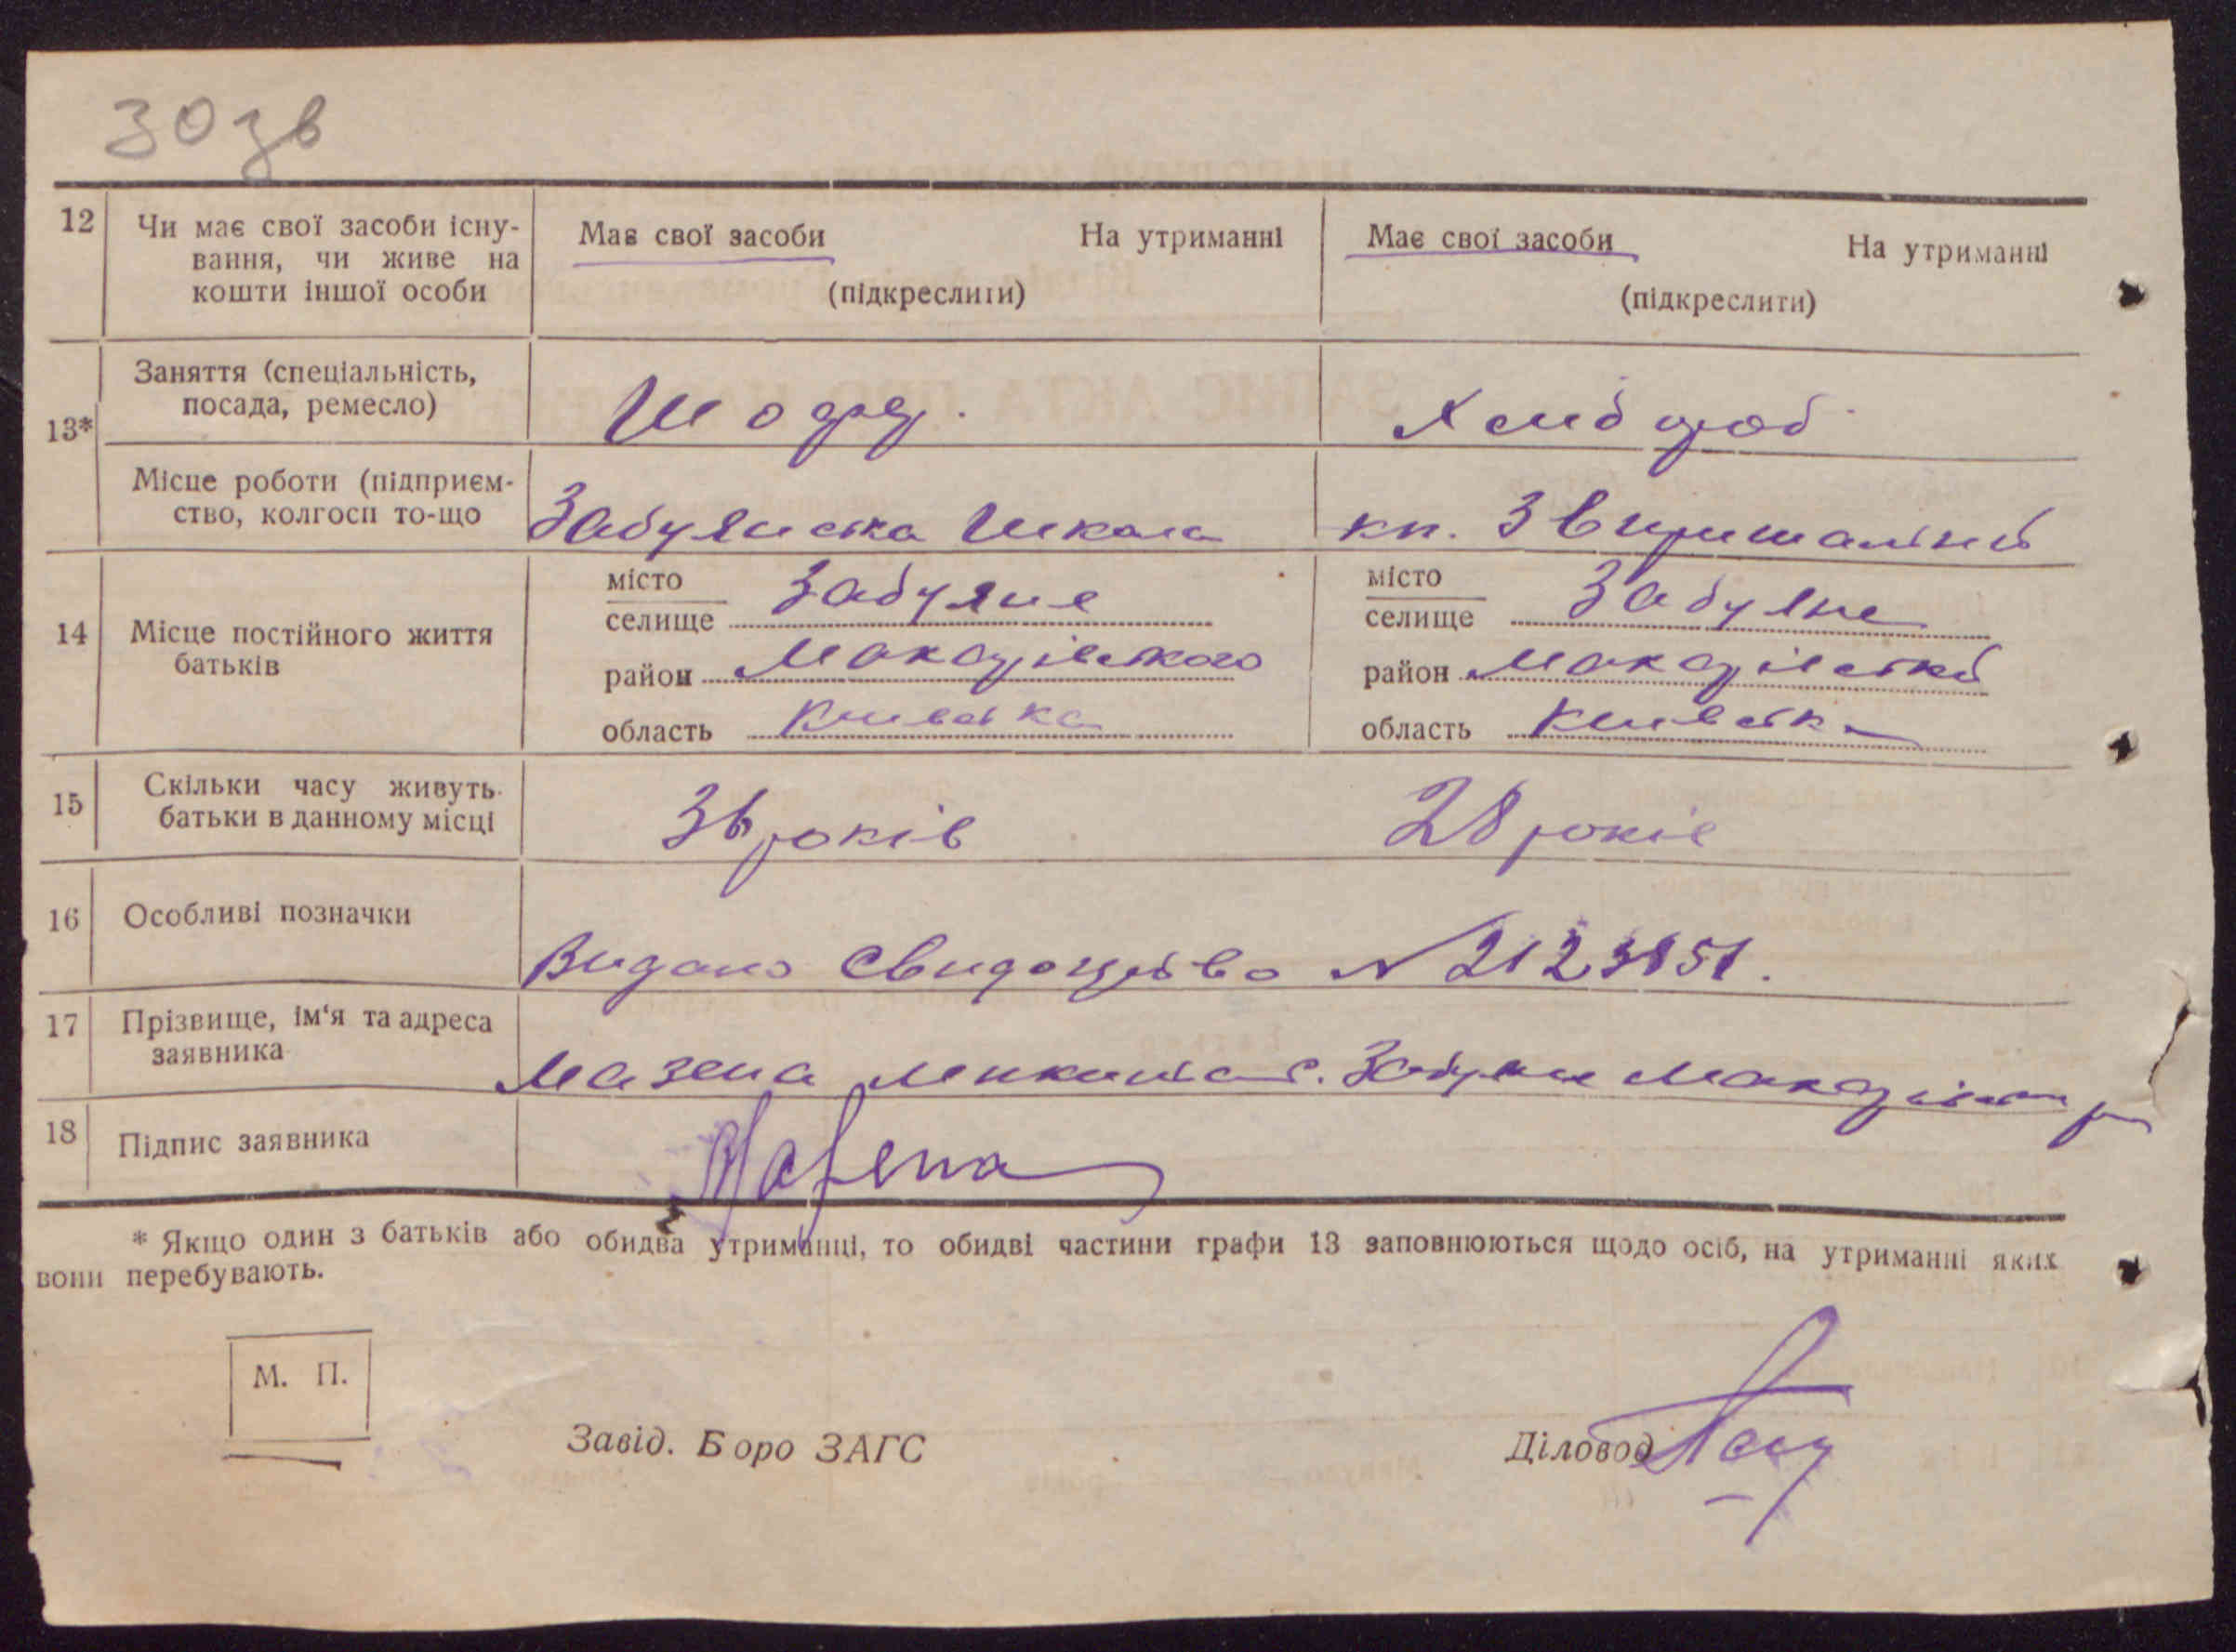 30 зв
12 Чи має свої засоби існу- Має свої засоби На утриманні Має свої засоби На утриманні
вання, чи живе на
кошти іншої особи (підкреслити) (підкреслити)
Заняття (спеціальність,
посада, ремесло) Хлібороб
13*
Місце роботи (підприєм-
ство, колгосп то-що Забуянська Школа кп.
14 Місце постійного життя
батьків
місто Забуяне місто Забуяне
селище селище
район Макарівського район Макарівськ
область Київська область Київська
15 Скільки часу живуть
батьки в данному місці 36 років 28 років
16 Особливі позначки
Видано Свидоцтво N 2123851.
17 Прізвище, ім‘я та адреса
заявника
Мазена Микита с. Забуяне Макарівськ р
18 Підпис заявника Мазена
* Якщо один з батьків або обидва утриманці, то обидві частини графи 13 заповнюються щодо осіб, на утриманні яких
вони перебувають.
М. П.
Завід. Боро ЗАГС Діловод